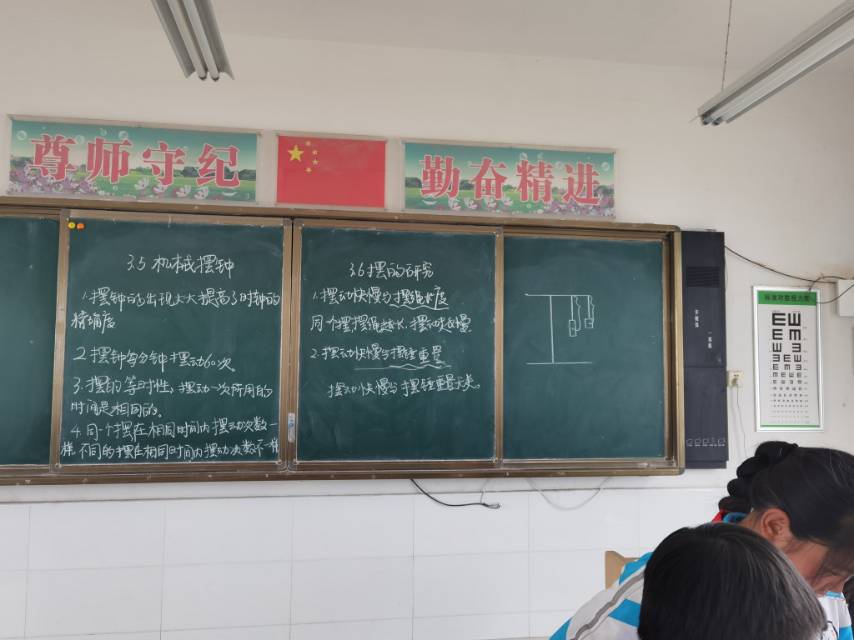 尊师守纪
勤奋精进
3.5 机械摆钟
1.摆钟的出现大大提高了时钟的
精确度
2.摆钟每分钟摆动60次。
3.摆的等时性，摆动一次所用的
时间是相同的。
4.同个摆在相同时间内摆动次数一
样,不同的摆在相同时间内摆动次数不一样
3.6 摆的研究
1.摆动快慢与摆绳长度
同个摆摆绳越长，摆动越慢
2.摆动快慢与摆锤重量
摆动快慢与摆锤重量无关。
标准对数视力表